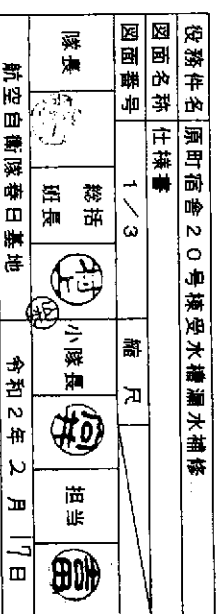 役務件名 原町宿舎20号棟受水槽漏水補修
図面名称 仕様書
図面番号 1/3 縮尺
隊長 総括班長 村上 小隊長 担当
航空自衛隊春日基地 令和2年2月17日